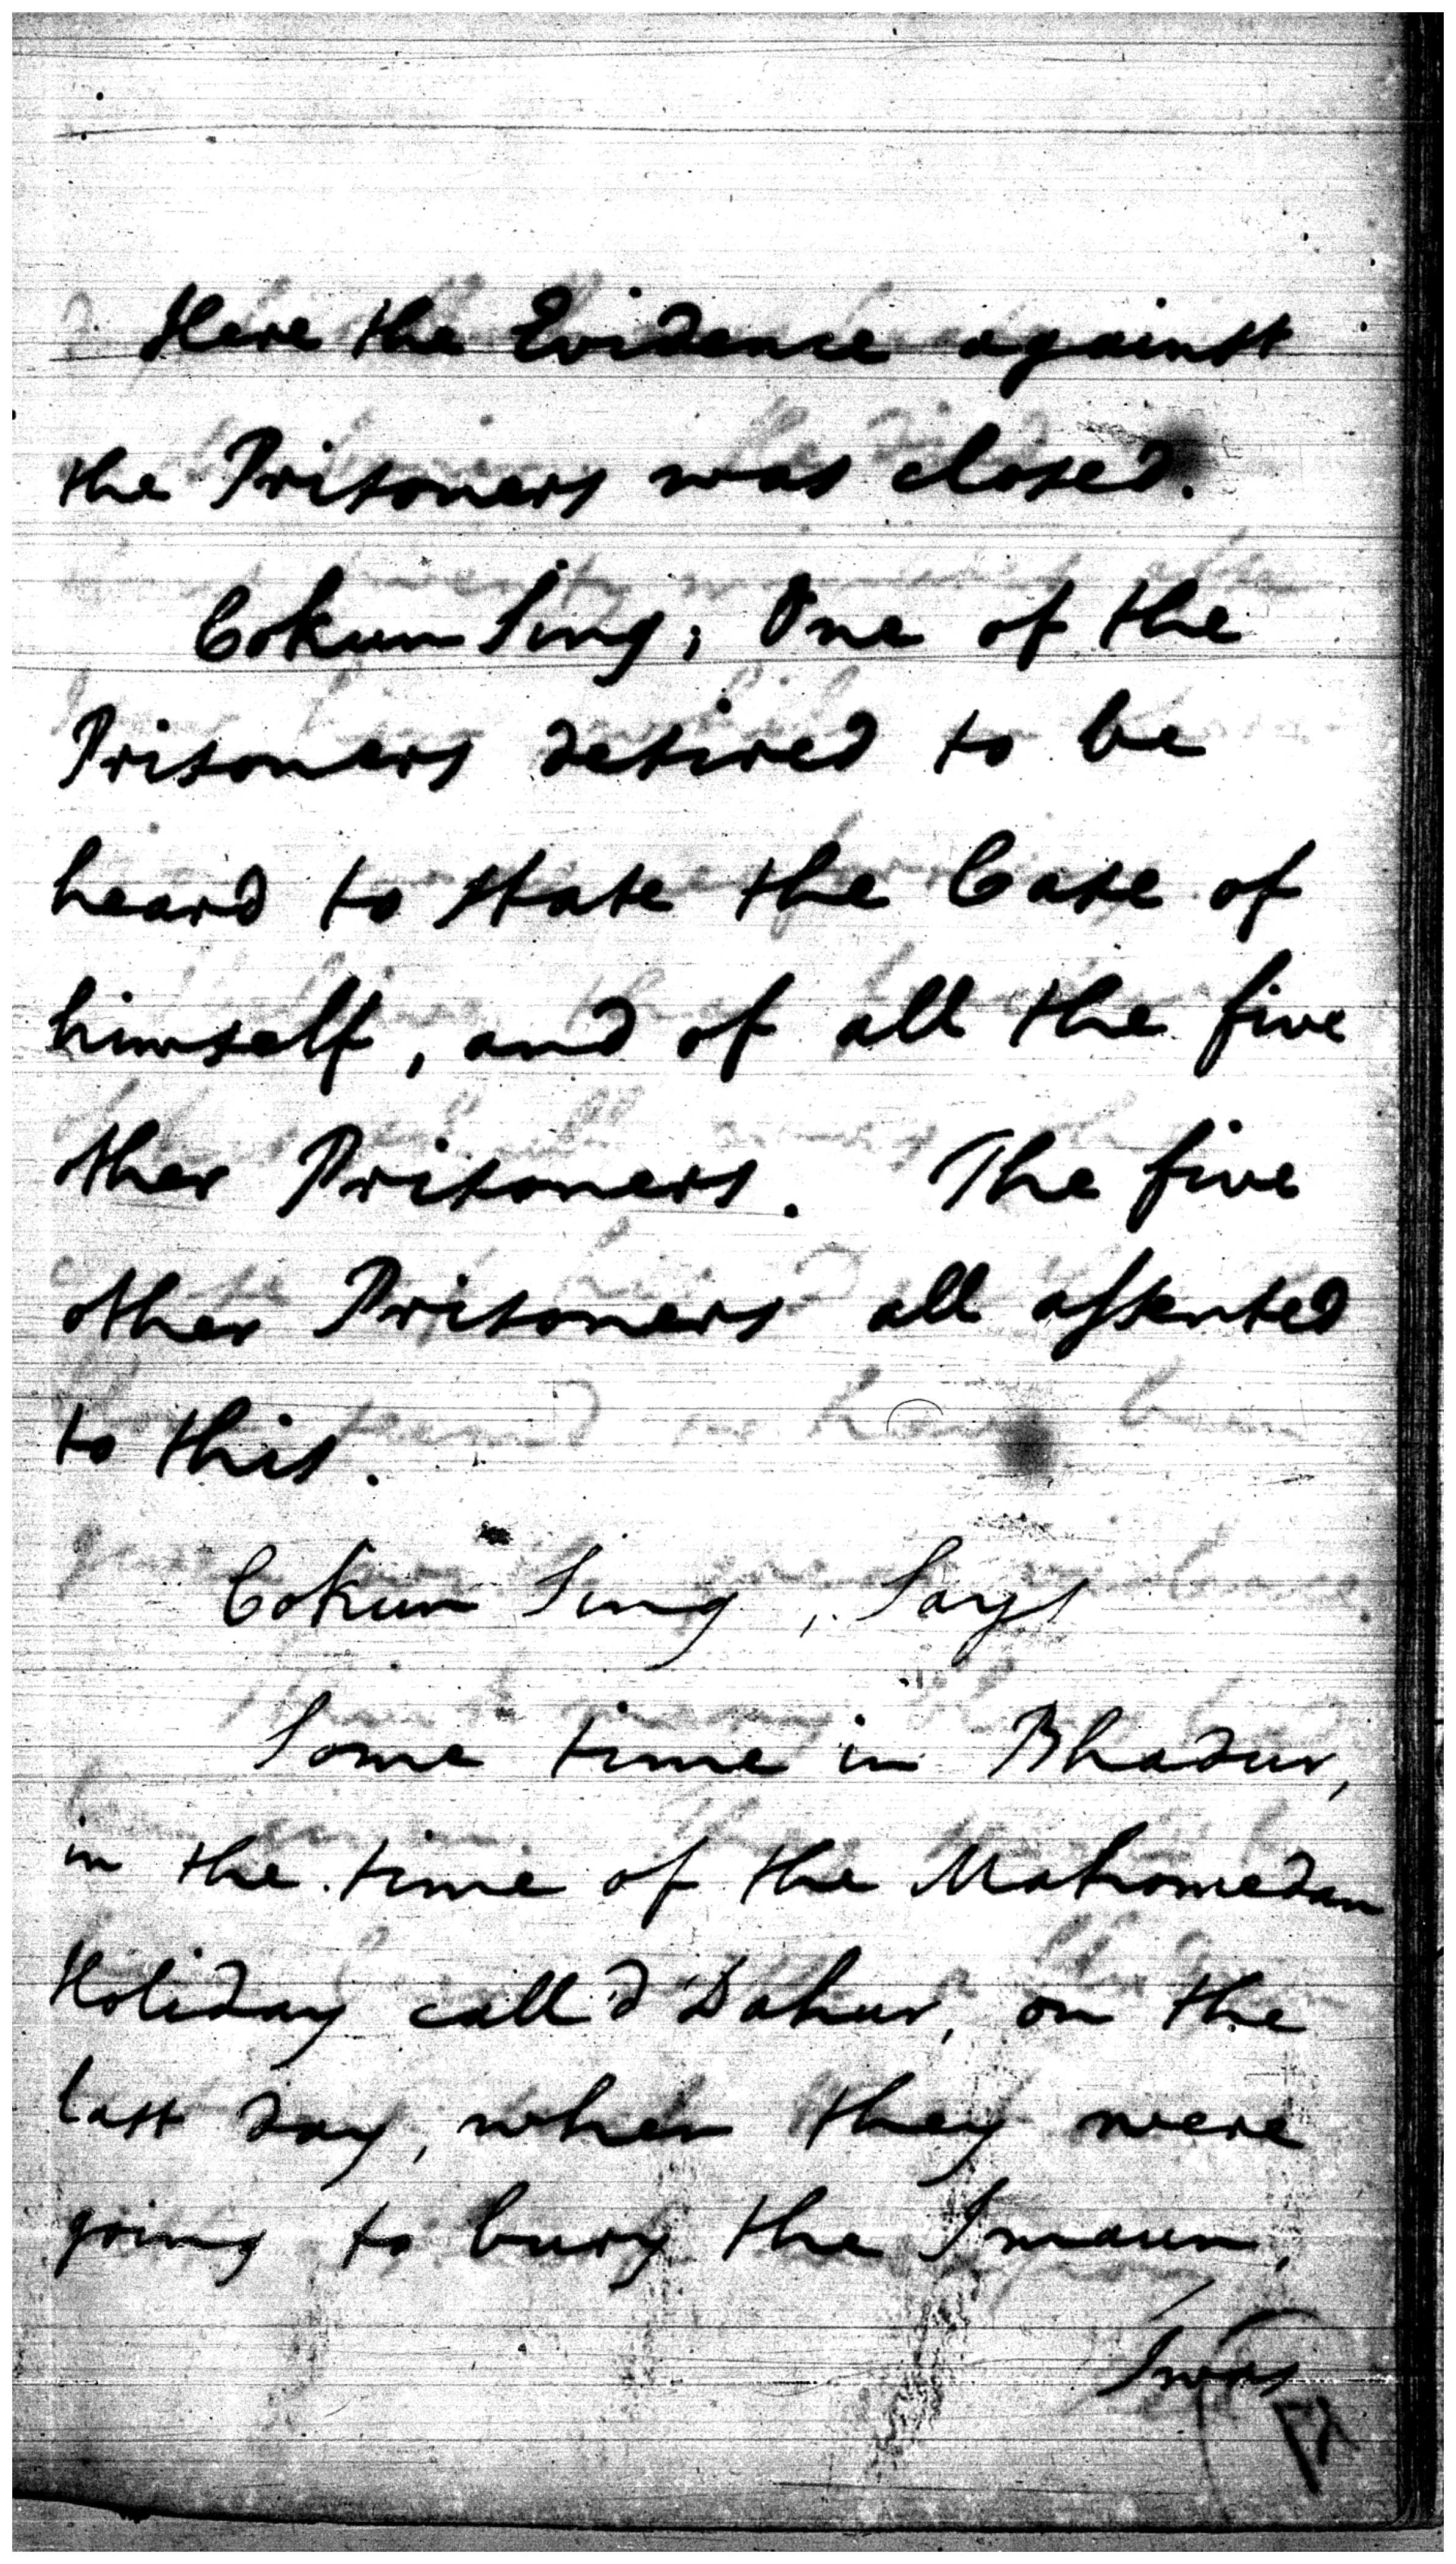 Here the Evidence against
the Prisoners was closed.
Cokun Sing; One of the
Prisoners desired to be
heard to State the Case of
himself, and of all the five
other Prisoners. The five
other Prisoners all assented
to this.
Cokun Sing, Says
Some time in Bhadur,
in the time of the Mahomedan
Holiday call'd Dahur, on the
last day, when they were
going to bury the Imaun,
I was